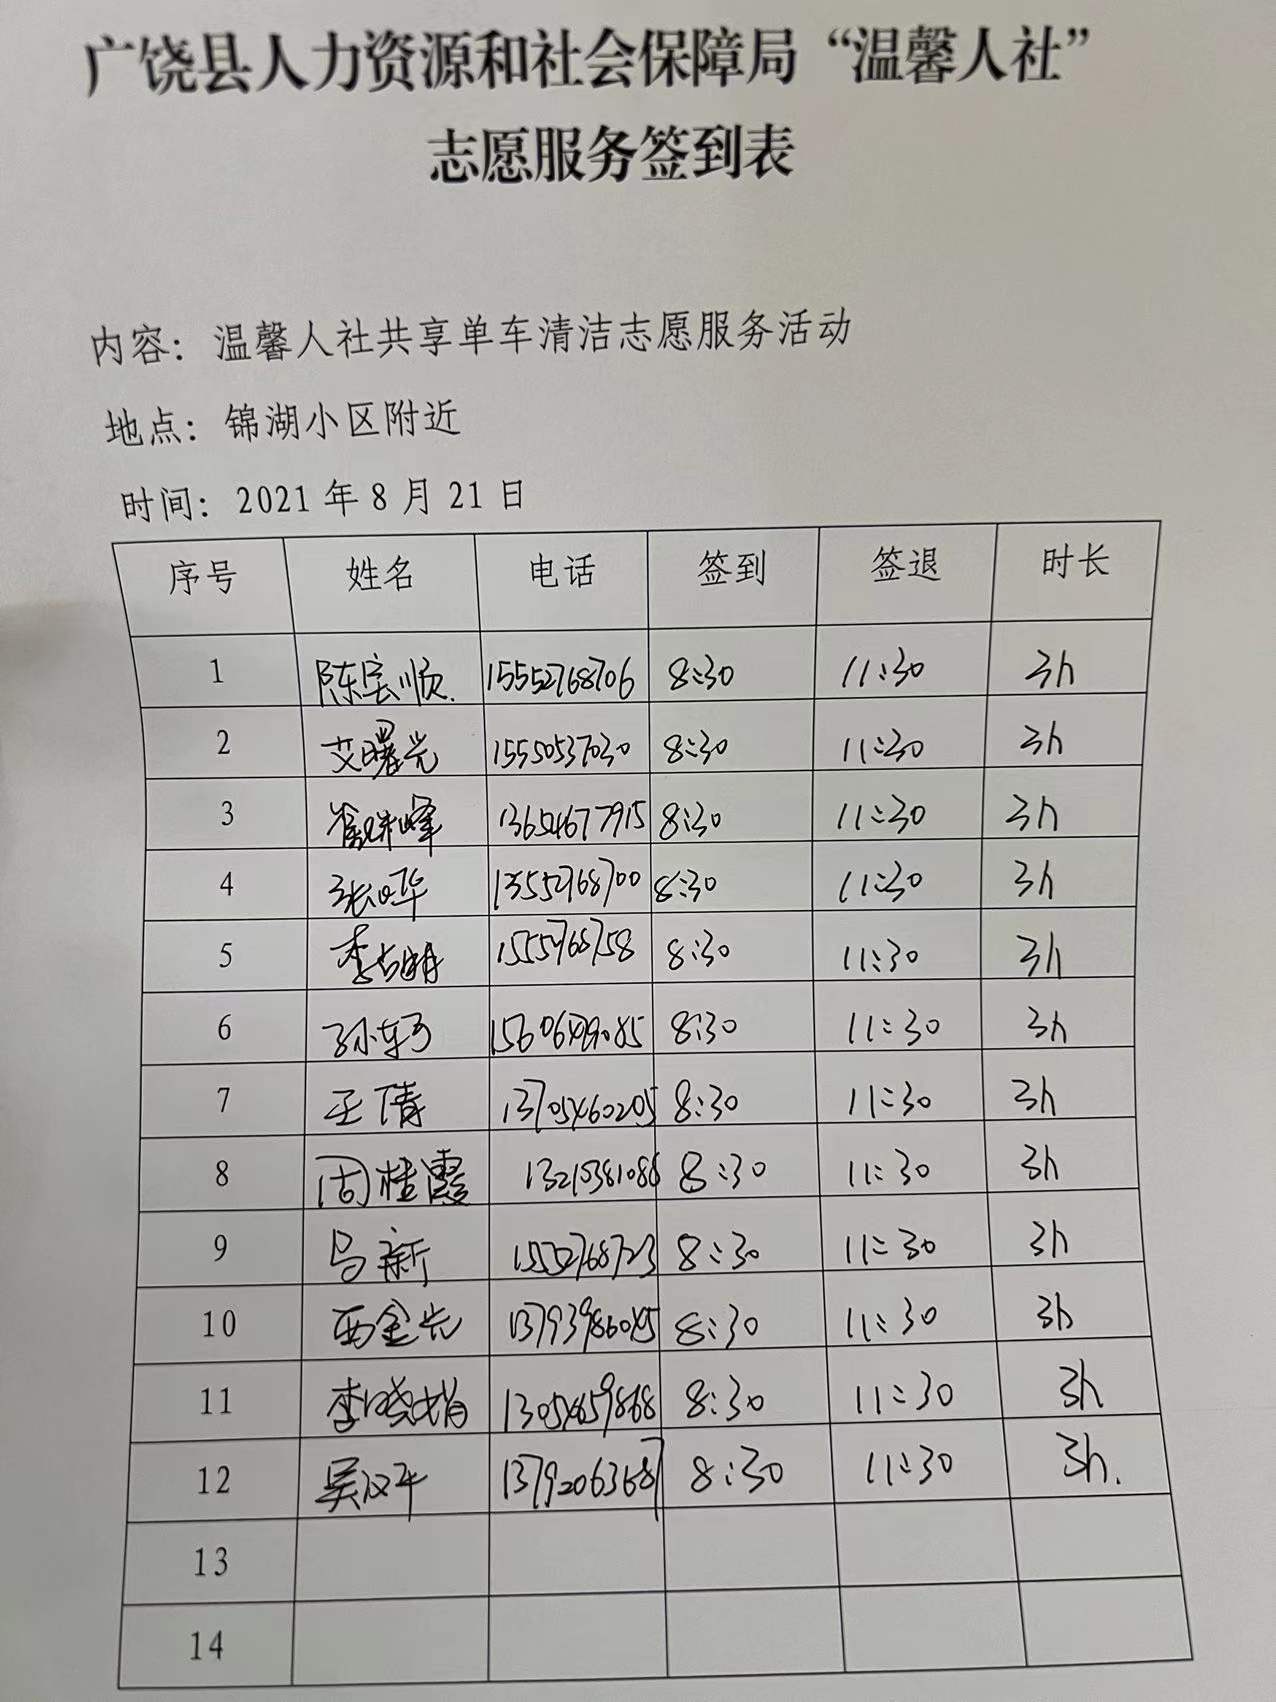 广饶县人力资源和社会保障局“温馨人社”
志愿服务签到表
内容：温馨人社共享单车清洁志愿服务活动
地点：锦湖小区附近
时间：2021 年 8 月 21 日
序号 姓名 电话 签到 签退 时长
1 陈宏顺 15552768706 8:30 11:30 3h
2 艾曙光 15550537030 8:30 11:30 3h
3 13654677915 8:30 11:30 3h
4 张晔 13552768700 8:30 11:30 3h
5 8:30 11:30 3h
6 8:30 11:30 3h
7 王倩 13705460205 8:30 11:30 3h
8 周桂霞 13210381086 8:30 11:30 3h
9 马新 15552768723 8:30 11:30 3h
10 西金光 8:30 11:30 3h
11 李晓娟 13054659868 8:30 11:30 3h
12 吴汉平 13792063687 8:30 11:30 3h.
13
14